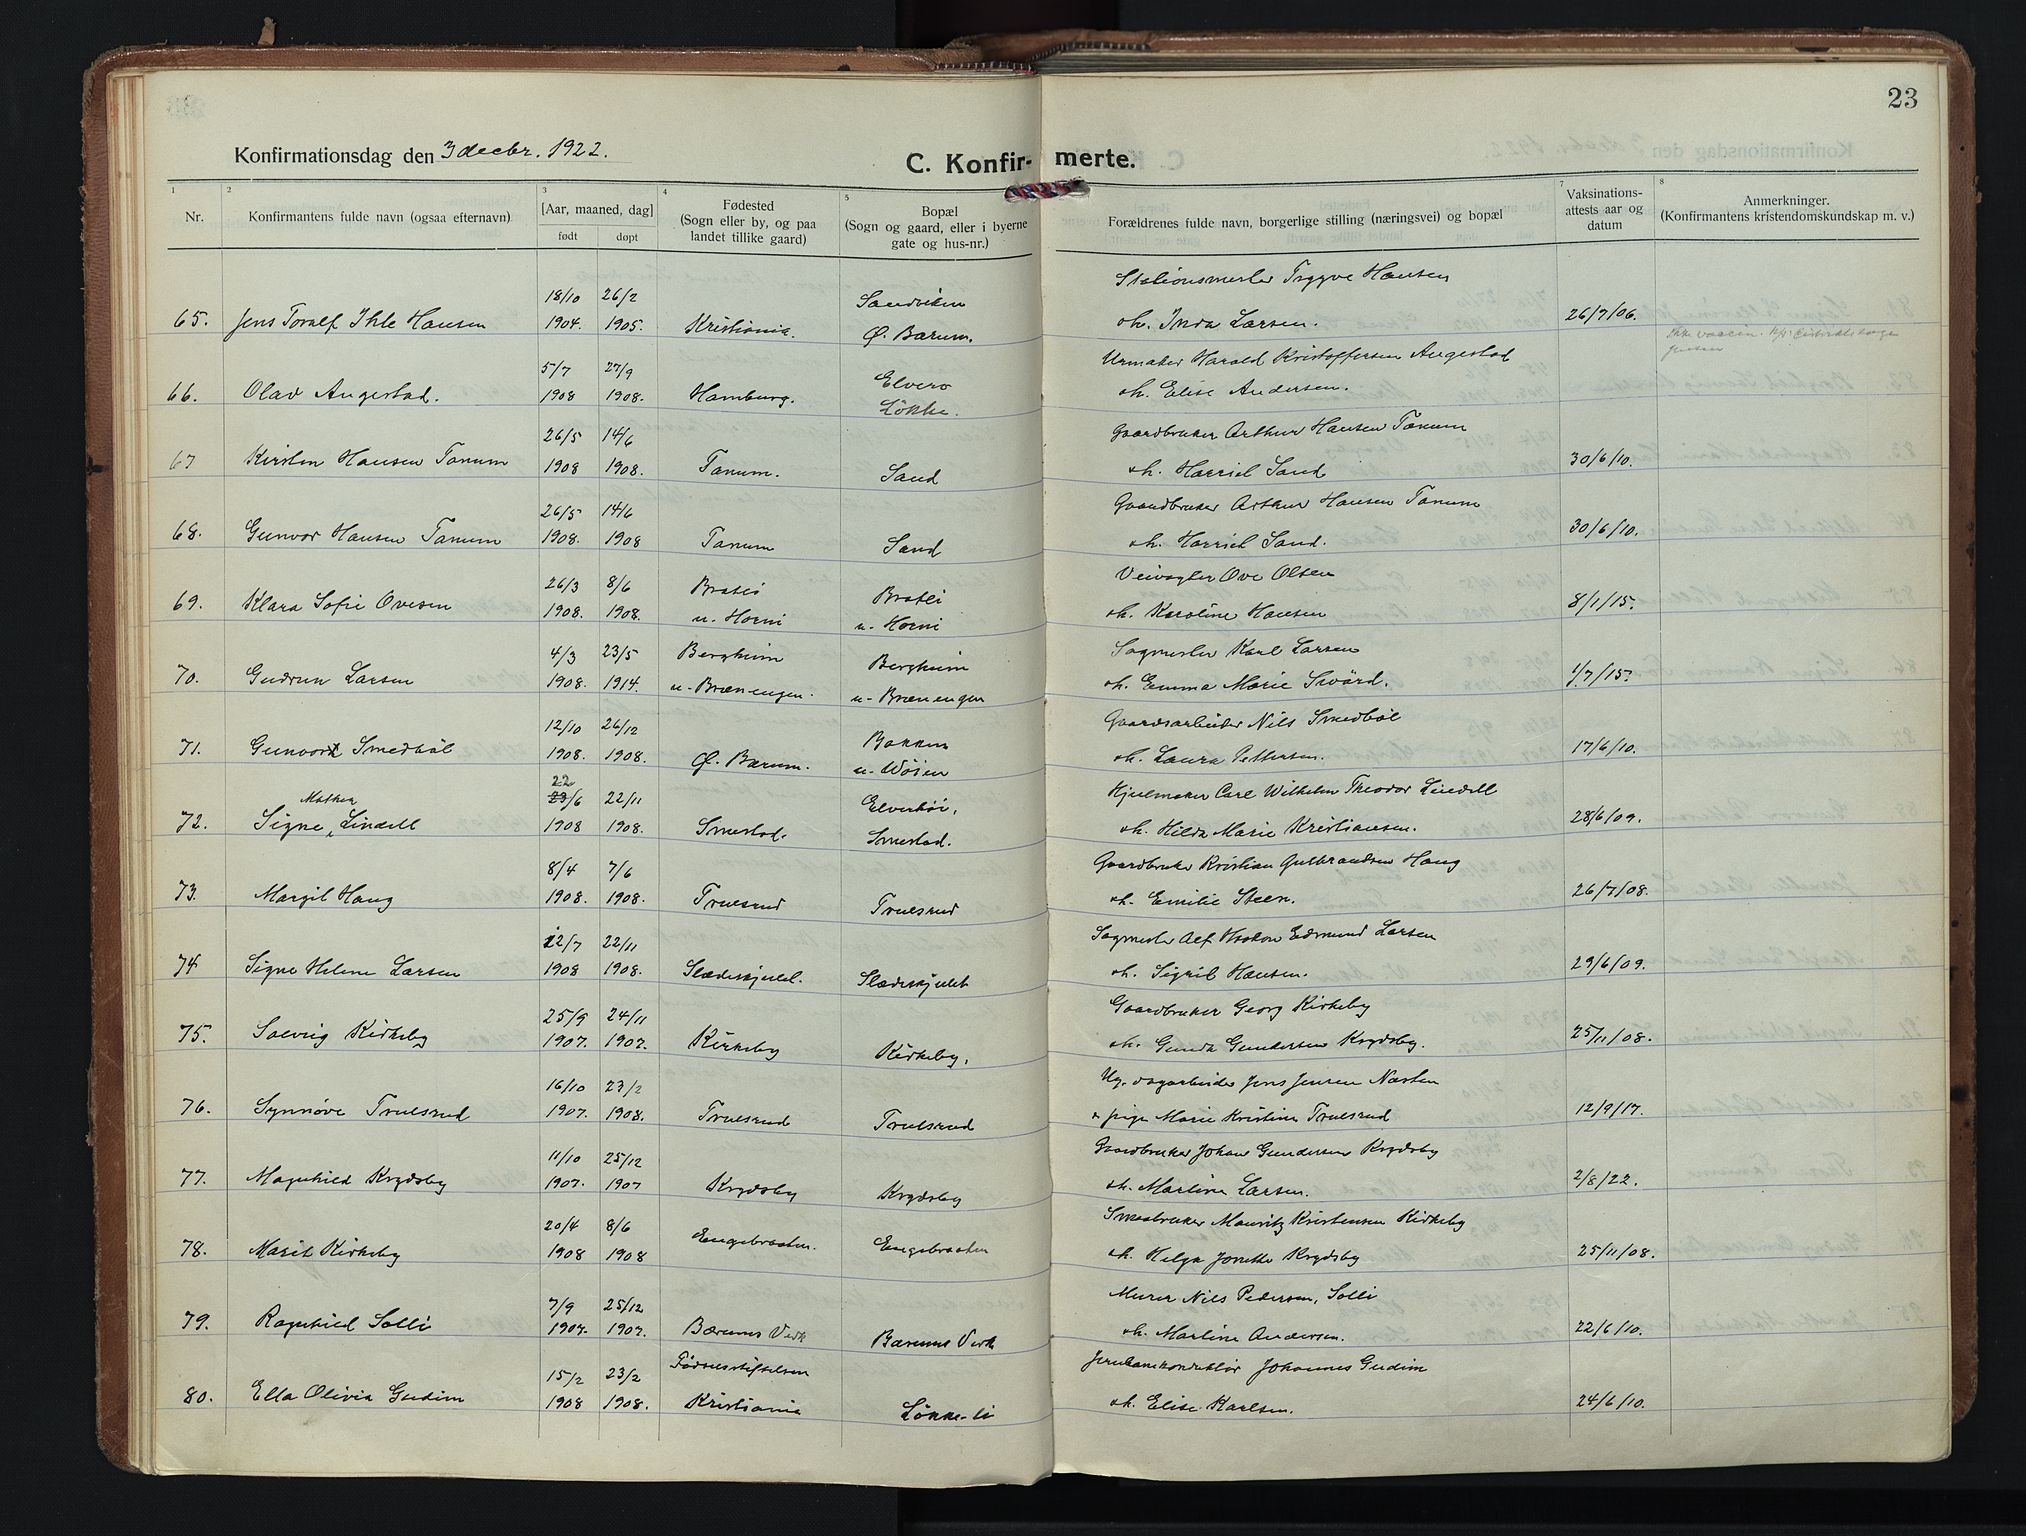 23
Konfirmationsdag den 3 decbr. 1922.
C. Konfirmerte.
1 2 3 4 5 7 8
Nr.
Konfirmantens fulde navn (ogsaa efternavn)
[Aar, maaned, dag]
født døpt
Fødested
(Sogn eller by, og paa
landet tillike gaard)
Bopæl
(Sogn og gaard, eller i byerne
gate og hus-nr.)
Forældrenes fulde navn, borgerlige stilling (næringsvei) og bopæl
Vaksinations-
attests aar og
datum
Anmerkninger.
(Konfirmantens kristendomskundskap m. v.)
18/10 26/2 Sandviken Stationsmester Trygve Hansen
65. Jens Toralf Ihle Hansen 1904. 1905. Kristiania. Ø. Bærum. oh. Inda Larsen. 26/7/06.
5/7 27/9 Elvero Urmaker Harald Kristoffersen Angestad
66. Olav Angestad. 1908 1908. Hamburg. Løkke. oh. Elise Andersen.
26/5 14/6 Gaardbruker Arthur Hansen Tanum
67 Kirsten Hansen Tanum 1908 1908. Tanum. Sand oh. Harriet Sand 30/6/10.
26/5 14/6 Gaardbruker Arthur Hansen Tanum
68. Gunvor Hansen Tanum 1908. 1908 Tanum Sand oh. Harriet Sand. 30/6/10.
26/3 8/6 Bratli Bratli Veivogter Ove Olsen
69. Klara Sofie Ovesen 1908. 1908. u. Horni u. Horni oh. Karoline Hansen 8/1/15.
4/3 23/5 Bergheim Bergheim Sagmester Karl Larsen
70. Gudrun Larsen 1908. 1914. u. Brænengen. u. Brænengen oh. Emma Marie Svärd. 1/7/15.
12/10 26/12 Bakken Gaardsarbeider Nils Smedbøl
71. Gunvor Smedbøl 1908. 1908. Ø. Bærum. u. Wøien oh. Laura Pettersen. 17/6/10.
Mathea 22 23/6 22/11 Elverhøi, Hjulmaker Carl Wilhelm Theodor Lindell
72. Signe, Lindell 1908 1908. Smestad. Smestad. oh. Hilda Marie Kristiansen. 28/6/09.
8/4 7/6 Gaardbruker Kristian Gulbrandsen Haug
73. Margit Haug 1908. 1908. Truelsrud Truelsrud oh. Emilie Steen. 26/7/08.
12/7 22/11 Sagmester Alf Haakon Edmund Larsen
74 Signe Helene Larsen 1908 1908. Slædeskjulet. Slædeskjulet oh. Sigrid Hansen. 29/6/09.
25/9 24/11 Gaardbruker Georg Kirkeby
75. Solveig Kirkeby 1907. 1907. Kirkeby Kirkeby. oh. Gunda Gundersen Krydsby. 25/11/08.
16/10 23/2 Ug. dagarbeider Jens Jensen Næsten
76. Synnøve Truelsrud 1907. 1908. Truelsrud Truelsrud & pige Marie Kristine Truelsrud 12/9/17.
11/10 25/12 Gaardbruker Johan Gundersen Krydsby
77. Magnhild Krydsby 1907. 1907 Krydsby Krydsby oh. Martine Larsen. 2/8/22.
20/4 8/6 Smaabruker Mauritz Kristensen Kirkeby
78. Marit Kirkeby 1908 1908 Engebraaten. Engebraaten oh. Helga Jonette Krydsby 25/11/08.
7/9 25/12 Murer Nils Pedersen, Solli
79. Ragnhild Solli 1907. 1907. Bærums Verk Bærums Verk oh. Martine Andersen. 22/6/10.
15/2 23/2 Fødselsstiftelsen Jernbanekonduktør Johannes Gudim
80. Ella Olivia Gudim 1908 1908. Kristiania Løkke-li oh. Elise Karlsen. 24/6/10.